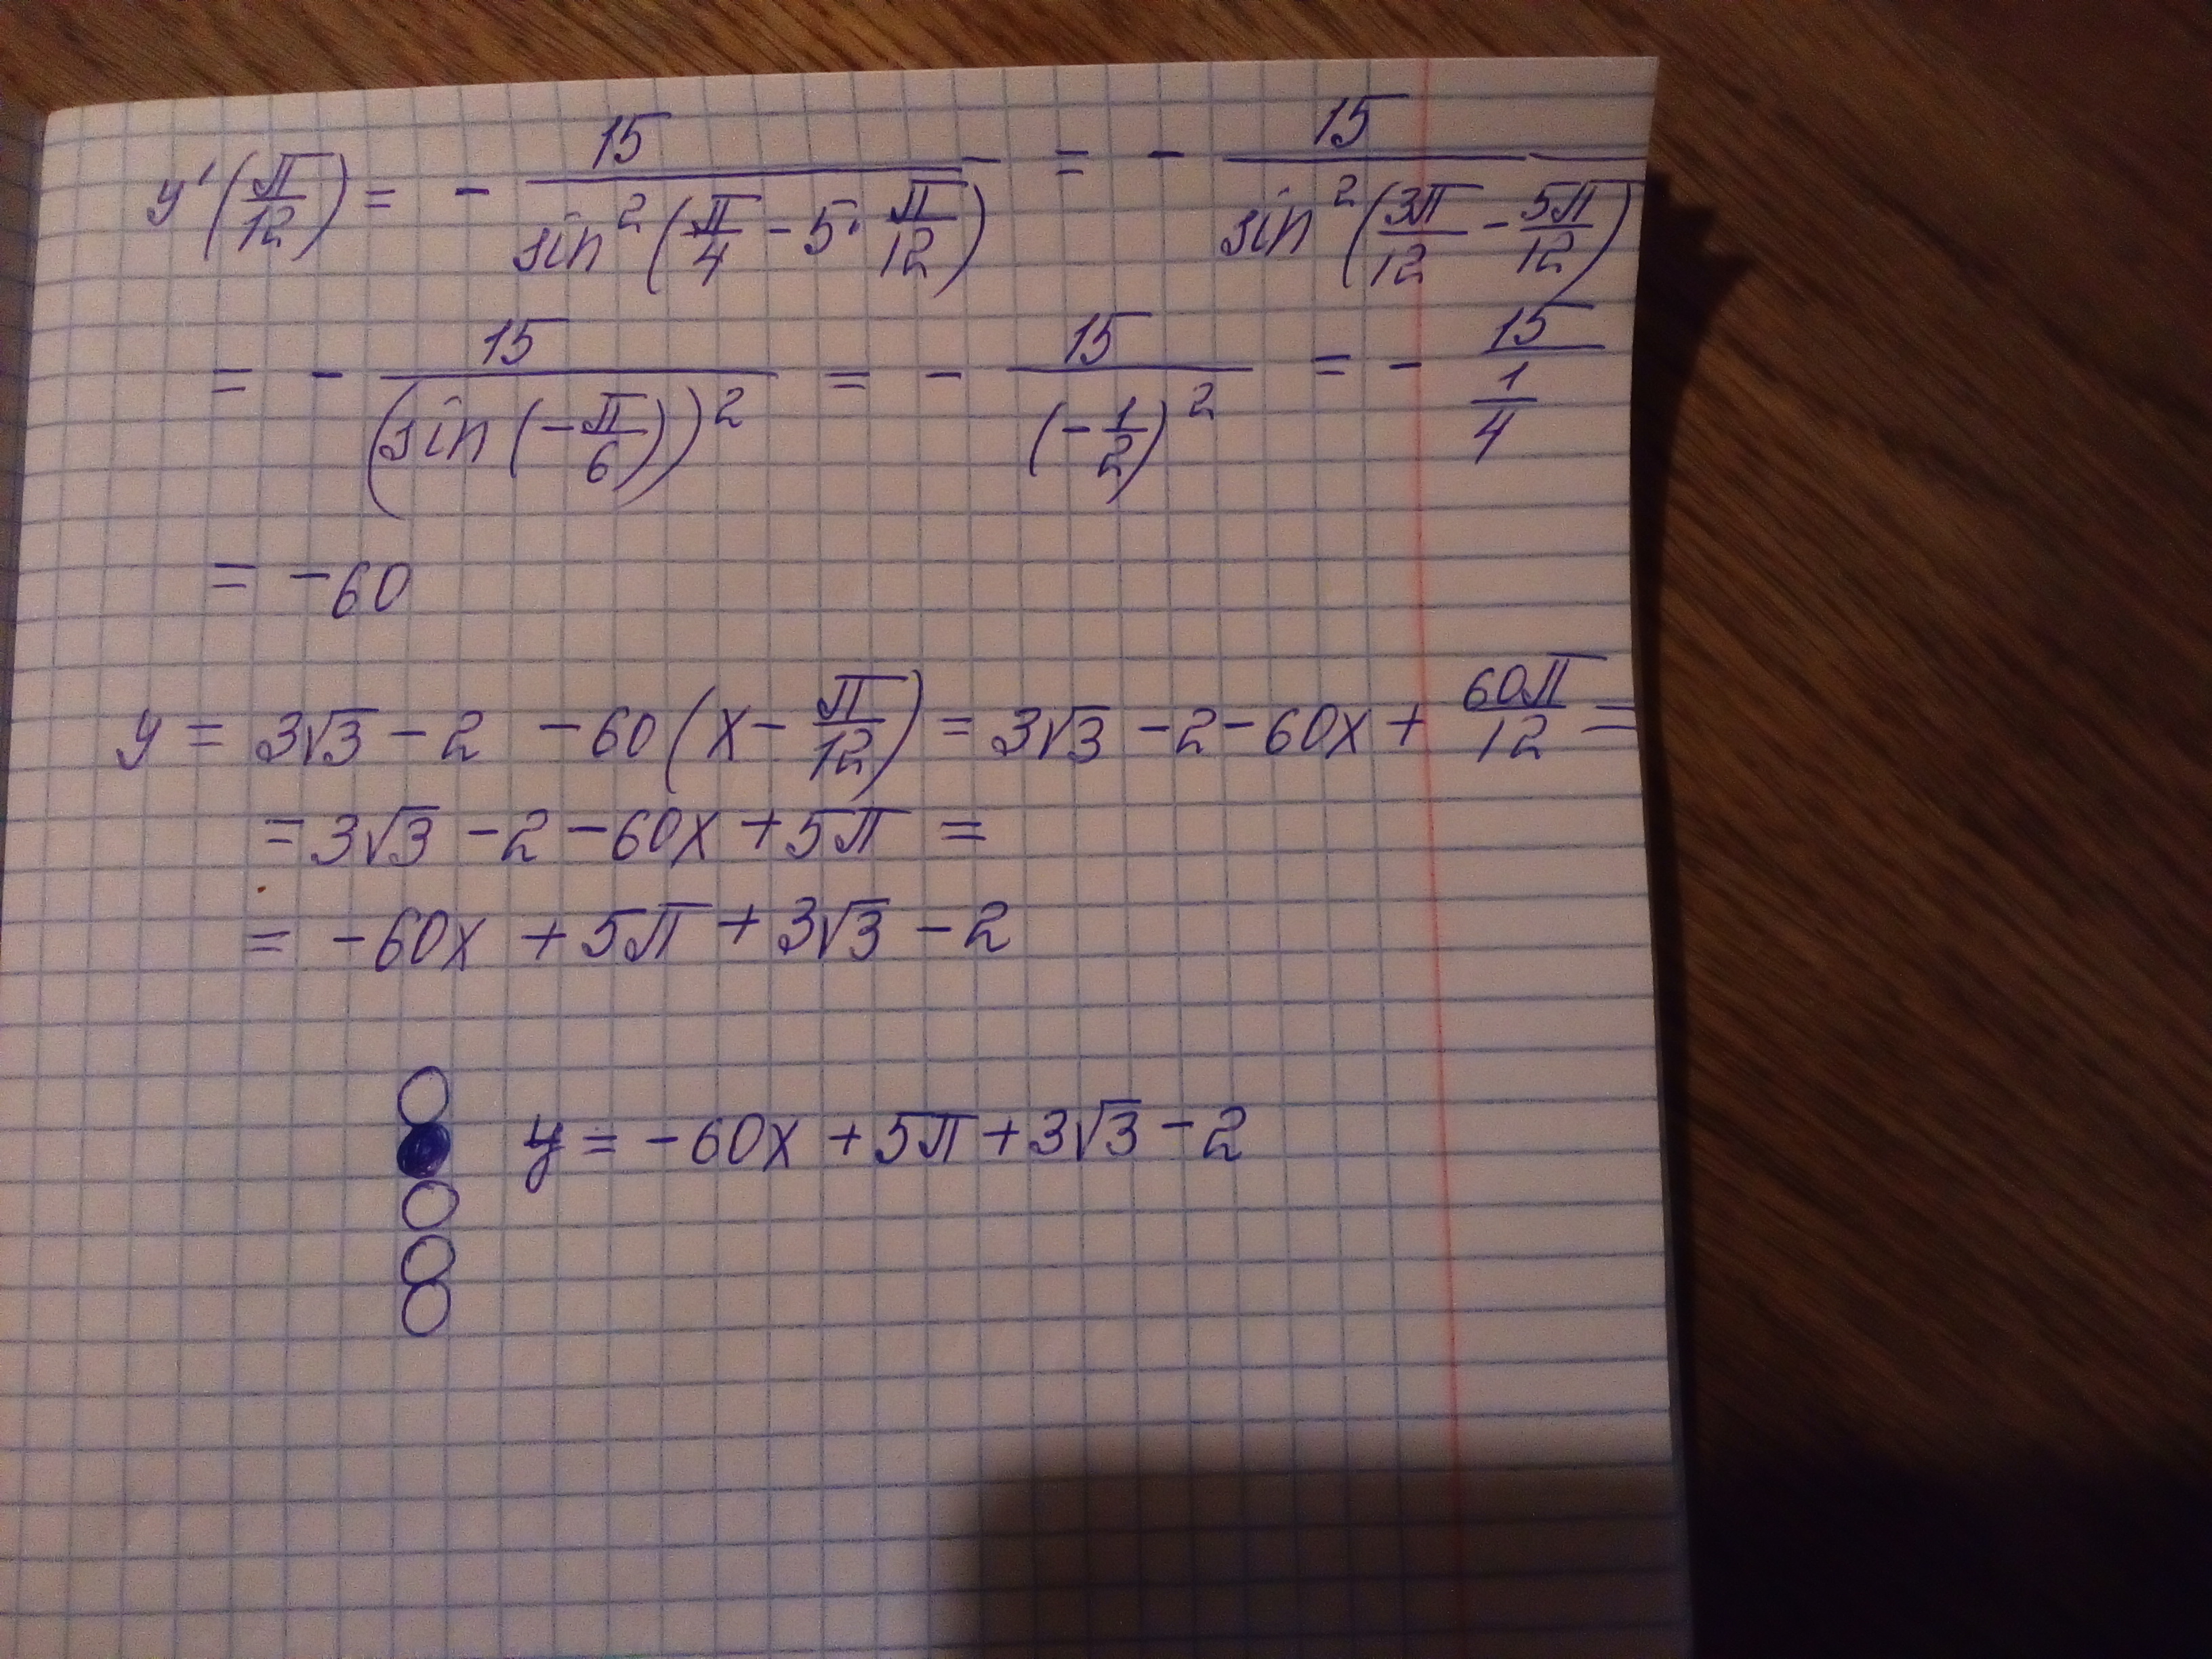 y'(π/12) = - 15/(sin²(π/4 - 5·π/12)) = - 15/(sin²(3π/12 - 5π/12))
= - 15/((sin(-π/6))²) = - 15/((-1/2)²) = - 15/(1/4)
= -60
y = 3√3 - 2 - 60(x - π/12) = 3√3 - 2 - 60x + 60π/12 =
= 3√3 - 2 - 60x + 5π =
= -60x + 5π + 3√3 - 2
y = -60x + 5π + 3√3 - 2